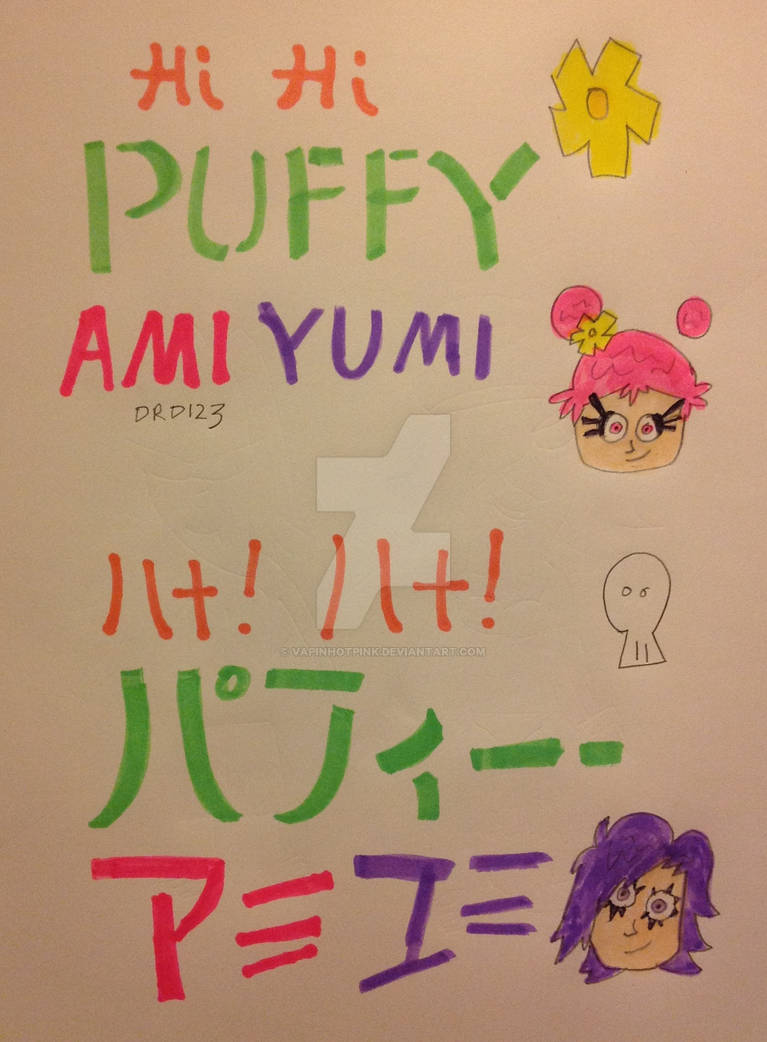 Hi Hi
PUFFY
AMI YUMI
DRD123
ハナ! ハナ!
© VAPINHOTPINK.DEVIANTART.COM
パフィー
アミ ユミ